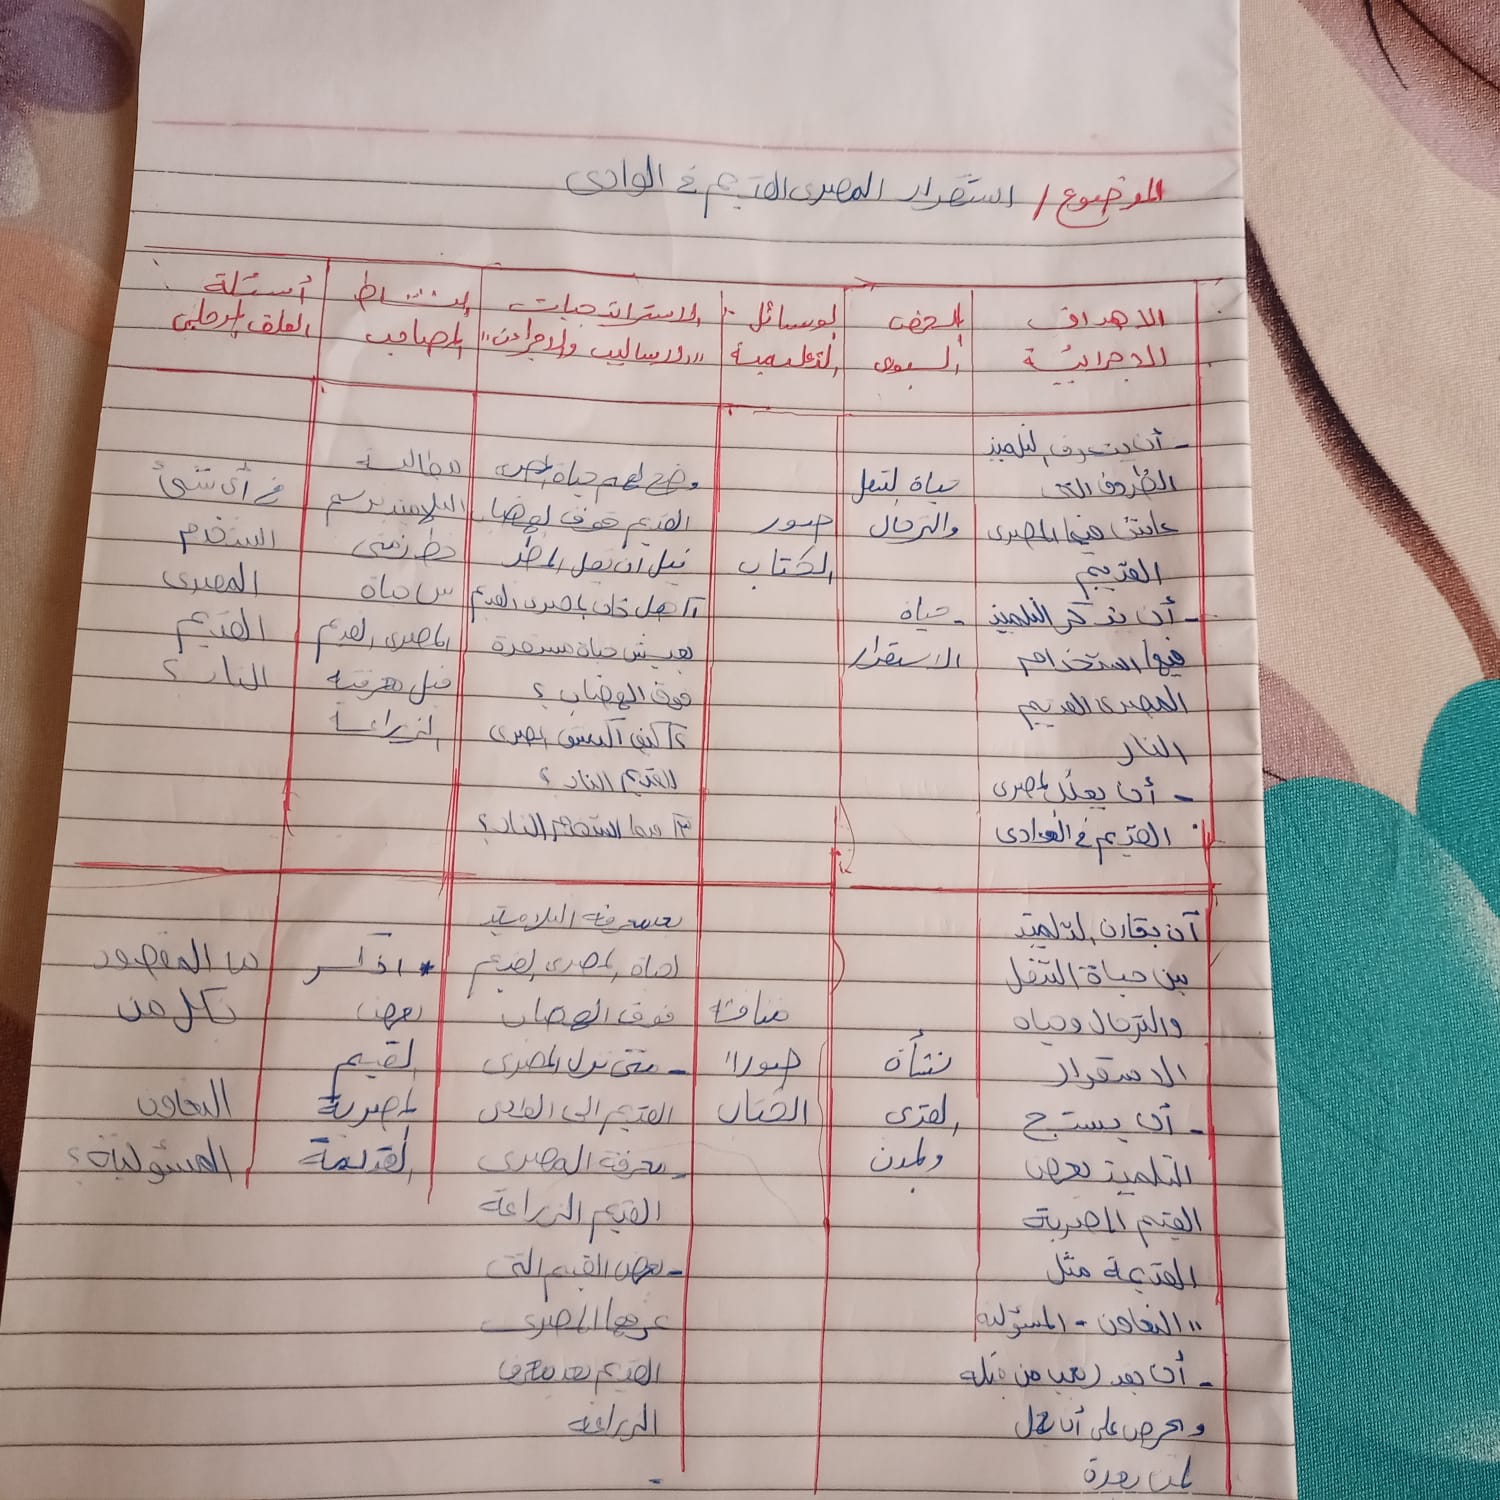 الموضوع / استقرار المصرى القديم فى الوادى
الاهداف
الاجرائية
المحتوى
السبورى
الوسائل
التعليمية
الاستراتيجيات
"الاساليب والاجراءات"
النشاط
المصاحب
أسئلة
الغلق المرحلى
- أن يتعرف التلميذ
الظروف التى
عاش فيها المصرى
القديم
- أن يذكر التلميذ
فيما استخدام
المصرى القديم
النار
- أن يعلل المصرى
القديم فى الوادى
حياة التنقل
والترحال
- حياة
الاستقرار
صور
الكتاب
وضح لهم حياة المصرى
القديم فوق الهضاب
قبل أن يقل المطر
١/ هل كان المصرى القديم
يعيش حياة مستقرة
فوق الهضاب ؟
٢/ كيف اكتشف المصرى
القديم النار ؟
٣/ فيما استخدم النار ؟
مطالبة
التلاميذ برسم
خط زمنى
عن حياة
المصرى القديم
قبل معرفته
الزراعة
فى أى شئ
استخدم
المصرى
القديم
النار ؟
أن يقارن التلميذ
بين حياة التنقل
والترحال وحياه
الاستقرار
- أن يستنتج
التلميذ بعض
القيم المصرية
القديمة مثل
" التعاون - المسئولية
- أن
وحرص على أن
نشأة
القرى
والمدن
مناقشة
صور
الكتاب
التلاميذ
لحياة المصرى القديم
فوق الهضاب
- متى نزل المصرى
القديم الى الوادى
- معرفة المصرى
القديم الزراعة
- بعض القيم التى
عرفها المصرى
القديم بعد معرفة
الزراعة
* اذكر
بعض
القيم
المصرية
القديمة
ما المقصود
بكل من
التعاون
المسئولية ؟